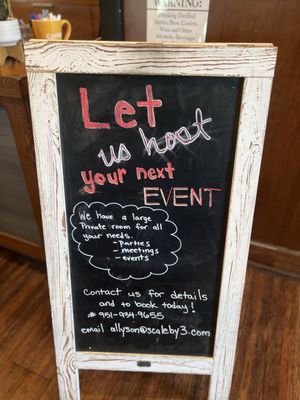 WARNING:
Drinking Distilled
Spirits, Beer, Coolers,
Wine and Other
Alcoholic Beverages
Let
us host
your next
EVENT
We have a large
Private room for all
your needs.
- parties
- meetings
- events
Contact us for details
and to book today!
# 951-934-9655
email allyson@scaleby3.com